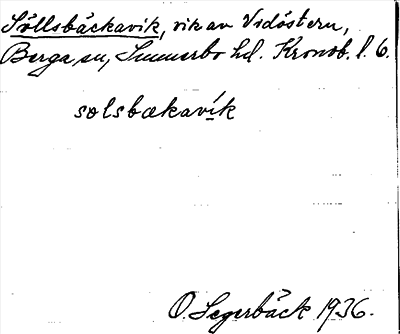 Söllsbäckavik, vik av Vidöstern,
Berga sn, Sunnerbo hd. Kronob. l. 6.
sɷlsbækavík
O. Segerbäck 1936.